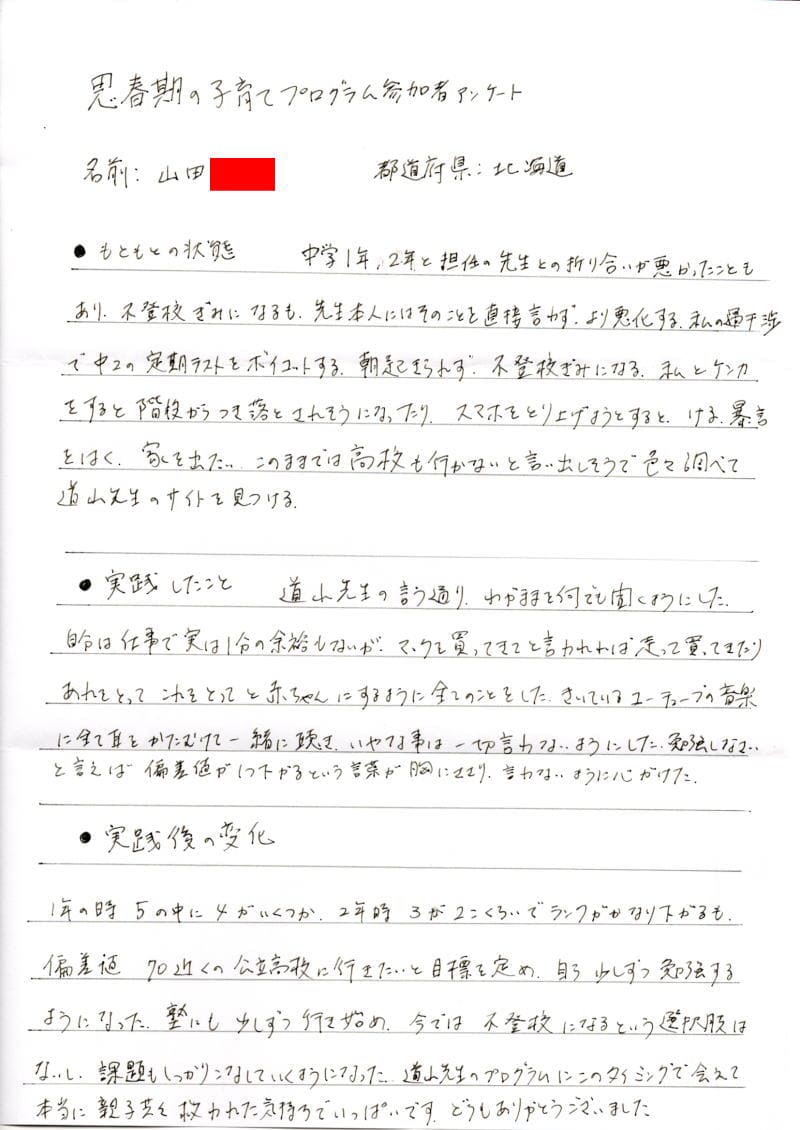 思春期の子育てプログラム参加者アンケート
名前: 山田
都道府県: 北海道
● もともとの状態 中学1年, 2年と担任の先生との折り合いが悪かったことも
あり、不登校ぎみになるも、先生本人にはそのことを直接言わず、より悪化する。私の過干渉
で中2の定期テストをボイコットする。朝起きられず、不登校ぎみになる。私とケンカ
をすると階段からつき落とされそうになったり、スマホをとり上げようとすると、ける、暴言
をはく、家を出たい、このままでは高校も行かないと言い出しそうで色々調べて
道山先生のサイトを見つける。
● 実践したこと 道山先生の言う通り、わがままを何でも聞くようにした。
自分は仕事で実は1分の余裕もないが、マックを買ってきてと言われれば走って買ってきたり
あれをとってこれをとってと赤ちゃんにするように全てのことをした。きいているユーチューブの音楽
に全て耳をかたむけて一緒に聴き、いやな事は一切言わないようにした。勉強しなさい
と言えば偏差値が1つ下がるという言葉が胸にささり、言わないように心がけた。
● 実践後の変化
1年の時 5の中に4がいくつか、2年時 3が2こくらいでランクがかなり下がるも、
偏差値 70近くの公立高校に行きたいと目標を定め、自ら少しずつ勉強する
ようになった。塾にも少しずつ行き始め、今では不登校になるという選択肢は
ないし、課題もしっかりこなしていくようになった。道山先生のプログラムにこのタイミングで会えて
本当に親子共々救われた気持ちでいっぱいです。どうもありがとうございました